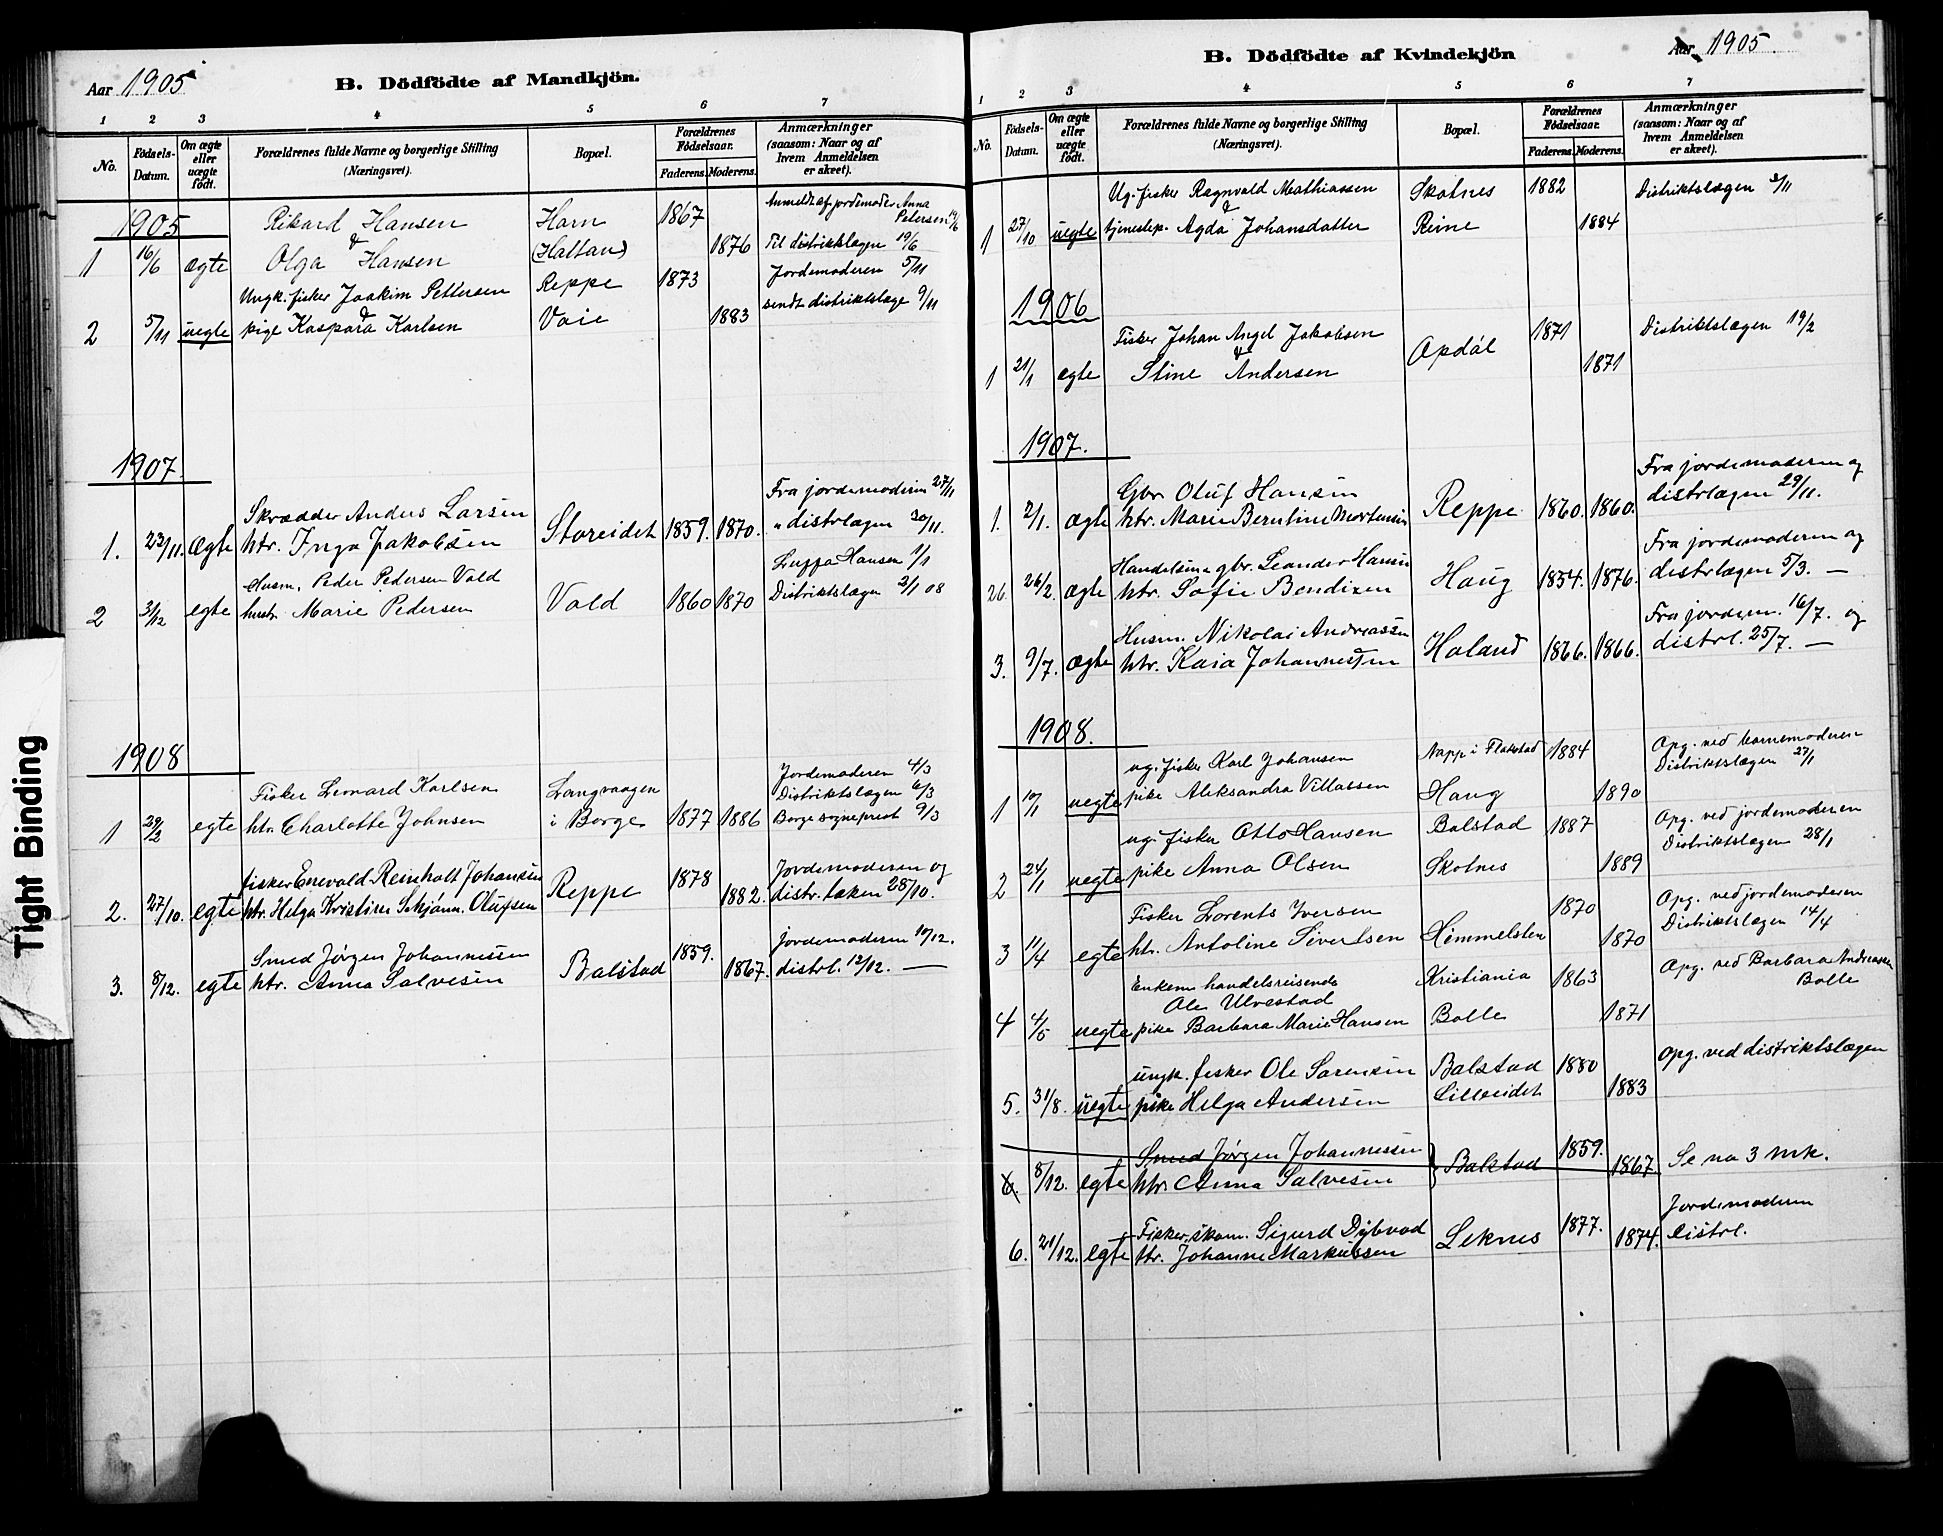 Aar 1905
B. Dödfödte af Mandkjön.
1 2 3 4 5 6 7
No.
Födsels-Datum.
Om ægte eller uægte födt.
Forældrenes fulde Navne og borgerlige Stilling (Næringsvei).
Bopæl.
Forældrenes Födselsaar.
Faderens. Moderens.
Anmærkninger (saasom: Naar og af hvem Anmeldelsen er skeet).
1905
Rikard Hansen Horn 1867 Anmeldt af jordemoder Anna Petersen 19/6
&
1 16/6 ægte Olga Hansen (Haltan) 1876 Til distriktslægen 19/6
Ungk. fisker Joakim Pettersen Reppe 1873 Jordemoderen 5/11
&
2 5/11 uegte pige Kaspara Karlsen Voie 1883 sendt distriktslæge 9/11
1907
Skrædder Anders Larsen Fra jordemoderen 27/11
1. 23/11. Ægte htr. Inga Jakobsen Storeidet 1859. 1870. " distrlægen 30/11.
Husm. Peder Pedersen Vold Hansen 1/1
2 3/12 egte hustr. Marie Pedersen Vold 1860 1870 Distriktslægen 2/1 08
1908
Fisker Leonard Karlsen Langvaagen Jordemoderen 4/3
Distriktslægen 6/3
1 29/2 egte htr. Charlotte Johnsen i Borge 1877 1886 Borge sogneprest 9/3
fisker Enevald Reinholt Johansen 1878 Jordemoderen og
2. 27/10. egte htr. Helga Kristine Schjønn. Olufsen Reppe 1882. distr. læken 28/10.
Smed Jørgen Johannessen 1859. Jordemoderen 10/12.
3. 8/12. egte htr. Anna Salvesen Balstad 1867. distrl. 12/12. —
Tight Binding
B. Dödfödte af Kvindekjön
Aar 1905.
1 2 3 4 5 6 7
No.
Födsels-Datum.
Om ægte eller uægte födt.
Forældrenes fulde Navne og borgerlige Stilling (Næringsvei).
Bopæl.
Forældrenes Födselsaar.
Faderens. Moderens.
Anmærkninger (saasom: Naar og af hvem Anmeldelsen er skeet).
Ug. fisker Ragnvald Mathiassen Skotnes 1882 Distriktslægen 3/11
&
1 27/10 uegte tjenestep. Agda Johansdatter Reine 1884
1906
Fisker Johan Angel Jakobsen 1871 Distriktslægen 19/2
&
1 21/1 egte Stine Andersen Opdøl 1871
1907.
Gbr. Oluf Hansen Fra jordemoderen og
1. 2/1. ægte htr. Marie Berntine Mortensen Reppe 1860. 1860. distrlægen 29/11.
Handelsm. & gbr. Leander Hansen Fra jordemoderen og
2. 26/2. ægte htr. Sofie Bendixen Haug 1854. 1876. distrlægen 5/3. —
Husm. Nikolai Andreassen Fra jordem. 16/7. og
3. 9/7. ægte htr. Kaia Johannessen Holand 1866. 1866. distrl. 25/7. —
1908.
ug. fisker Karl Johansen Napp i Flakstad 1884 Opg. ved barnemoderen
Distriktslægen 27/1
1 10/1 uegte pike Aleksandra Villassen Haug 1890
ug. fisker Otto Hansen Balstad 1887 Opg. ved jordemoderen
Distriktslægen 28/1
2 24/1 uegte pike Anna Olsen Skotnes 1889
Fisker Lorents Iversen 1870 Opg. ved jordemoderen
Distriktslægen 14/4
3 11/4 egte htr. Antoline Sivertsen Himmelsten 1870
Enkem. handelsreisende Kristiania 1863 Opg. ved Barbara Andreassen
Ole Ulvestad Bolle
4 4/5 uegte pike Barbara Marie Hansen Bolle 1871
ungk. fisker Ole Sørensen Balstad 1880 Opg. ved distriktslægen
5. 31/8. uegte pike Helga Andersen Lilleeidet 1883
Smed Jørgen Johannessen 1859.
6. 8/12. egte htr. Anna Salvesen Balstad 1867. Se no 3 mk.
Fisker, skom. Sigurd Dybvad 1877. Jordemoderen
6. 21/12. egte Htr. Johanne Markussen Leknes 1874. Distrl.